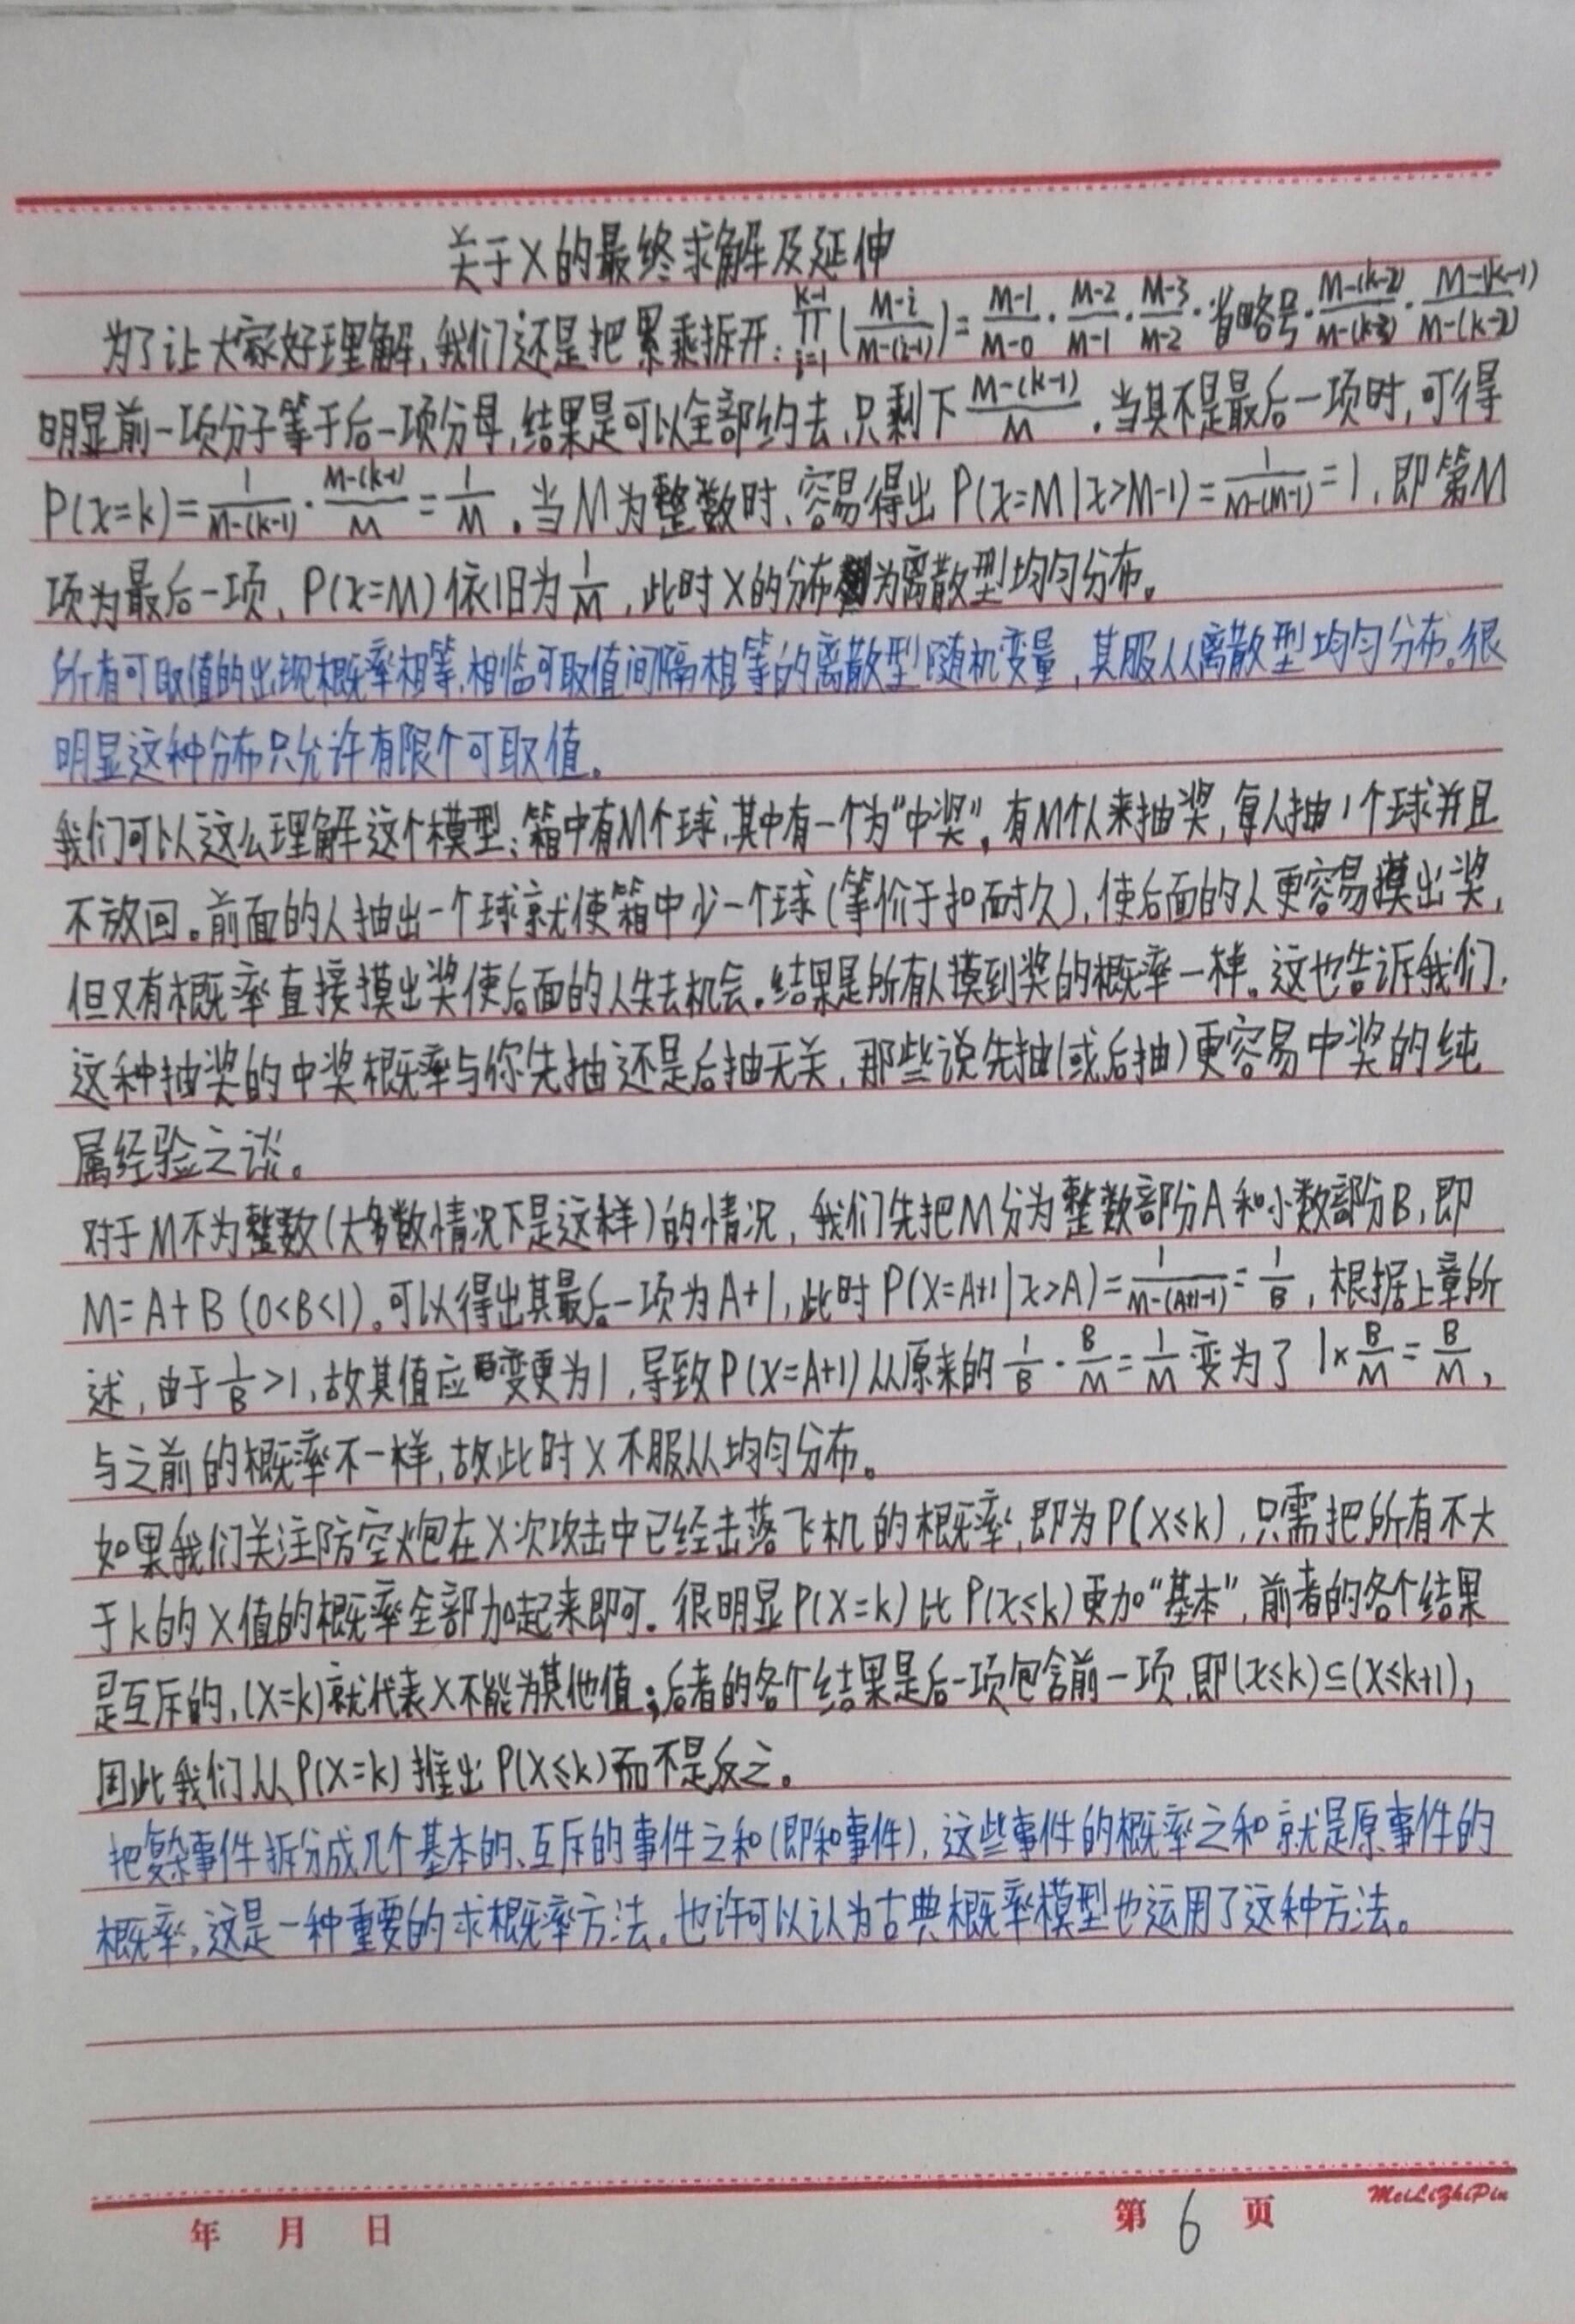 关于X的最终求解及延伸
为了让大家好理解,我们还是把累乘拆开:∏_{i=1}^{k-1}(\frac{M-i}{M-(i-1)})=\frac{M-1}{M-0}·\frac{M-2}{M-1}·\frac{M-3}{M-2}·省略号·\frac{M-(k-2)}{M-(k-3)}·\frac{M-(k-1)}{M-(k-2)}
明显前一项分子等于后一项分母,结果是可以全部约去,只剩下\frac{M-(k-1)}{M}。当其不是最后一项时,可得
P(X=k)=\frac{1}{M-(k-1)}·\frac{M-(k-1)}{M}=\frac{1}{M}。当M为整数时,容易得出P(X=M|X>M-1)=\frac{1}{M-(M-1)}=1,即第M
项为最后一项,P(X=M)依旧为\frac{1}{M},此时X的分布为离散型均匀分布。
所有可取值的出现概率相等,相临可取值间隔相等的离散型随机变量,其服从离散型均匀分布。很
明显这种分布只允许有限个可取值。
我们可以这么理解这个模型:箱中有M个球,其中有一个为“中奖”。有M个人来抽奖,每人抽1个球并且
不放回。前面的人抽出一个球就使箱中少一个球(等价于扣耐久),使后面的人更容易摸出奖,
但又有概率直接摸出奖使后面的人失去机会。结果是所有人摸到奖的概率一样。这也告诉我们,
这种抽奖的中奖概率与你先抽还是后抽无关,那些说先抽(或后抽)更容易中奖的纯
属经验之谈。
对于M不为整数(大多数情况下是这样)的情况,我们先把M分为整数部分A和小数部分B,即
M=A+B(0<B<1)。可以得出其最后一项为A+1,此时P(X=A+1|X>A)=\frac{1}{M-(A+1-1)}=\frac{1}{B},根据上章所
述,由于\frac{1}{B}>1,故其值应变更为1,导致P(X=A+1)从原来的\frac{1}{B}·\frac{B}{M}=\frac{1}{M}变为了1×\frac{B}{M}=\frac{B}{M},
与之前的概率不一样,故此时X不服从均匀分布。
如果我们关注防空炮在X次攻击中已经击落飞机的概率,即为P(X≤k),只需把所有不大
于k的X值的概率全部加起来即可。很明显P(X=k)比P(X≤k)更加“基本”,前者的各个结果
是互斥的,(X=k)就代表X不能为其他值;后者的各个结果是后一项包含前一项,即(X≤k)⊆(X≤k+1),
因此我们从P(X=k)推出P(X≤k)而不是反之。
把复杂事件拆分成几个基本的、互斥的事件之和(即和事件),这些事件的概率之和就是原事件的
概率,这是一种重要的求概率方法。也许可以认为古典概率模型也运用了这种方法。
年 月 日 第 6 页 MeiLiZhiPin